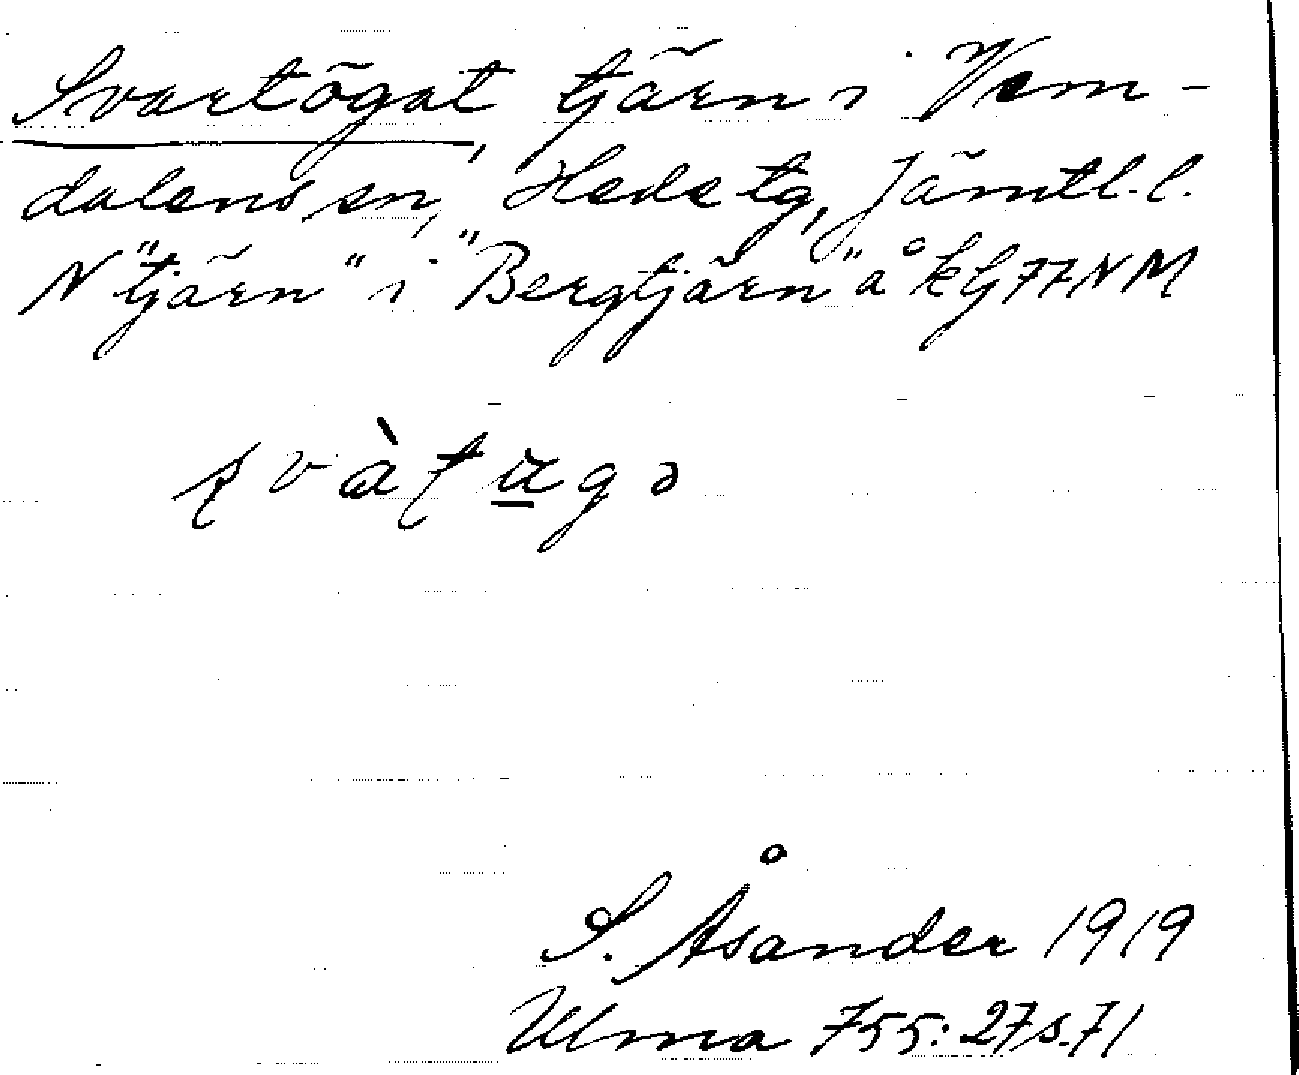 Svartögat, tjärn i Vem-
dalens sn, Hede tg, Jämtl. l.
N "tjärn" i "Bergtjärn" å kG77NM
S. Åsander 1919
Ulma 755: 27 s. 71